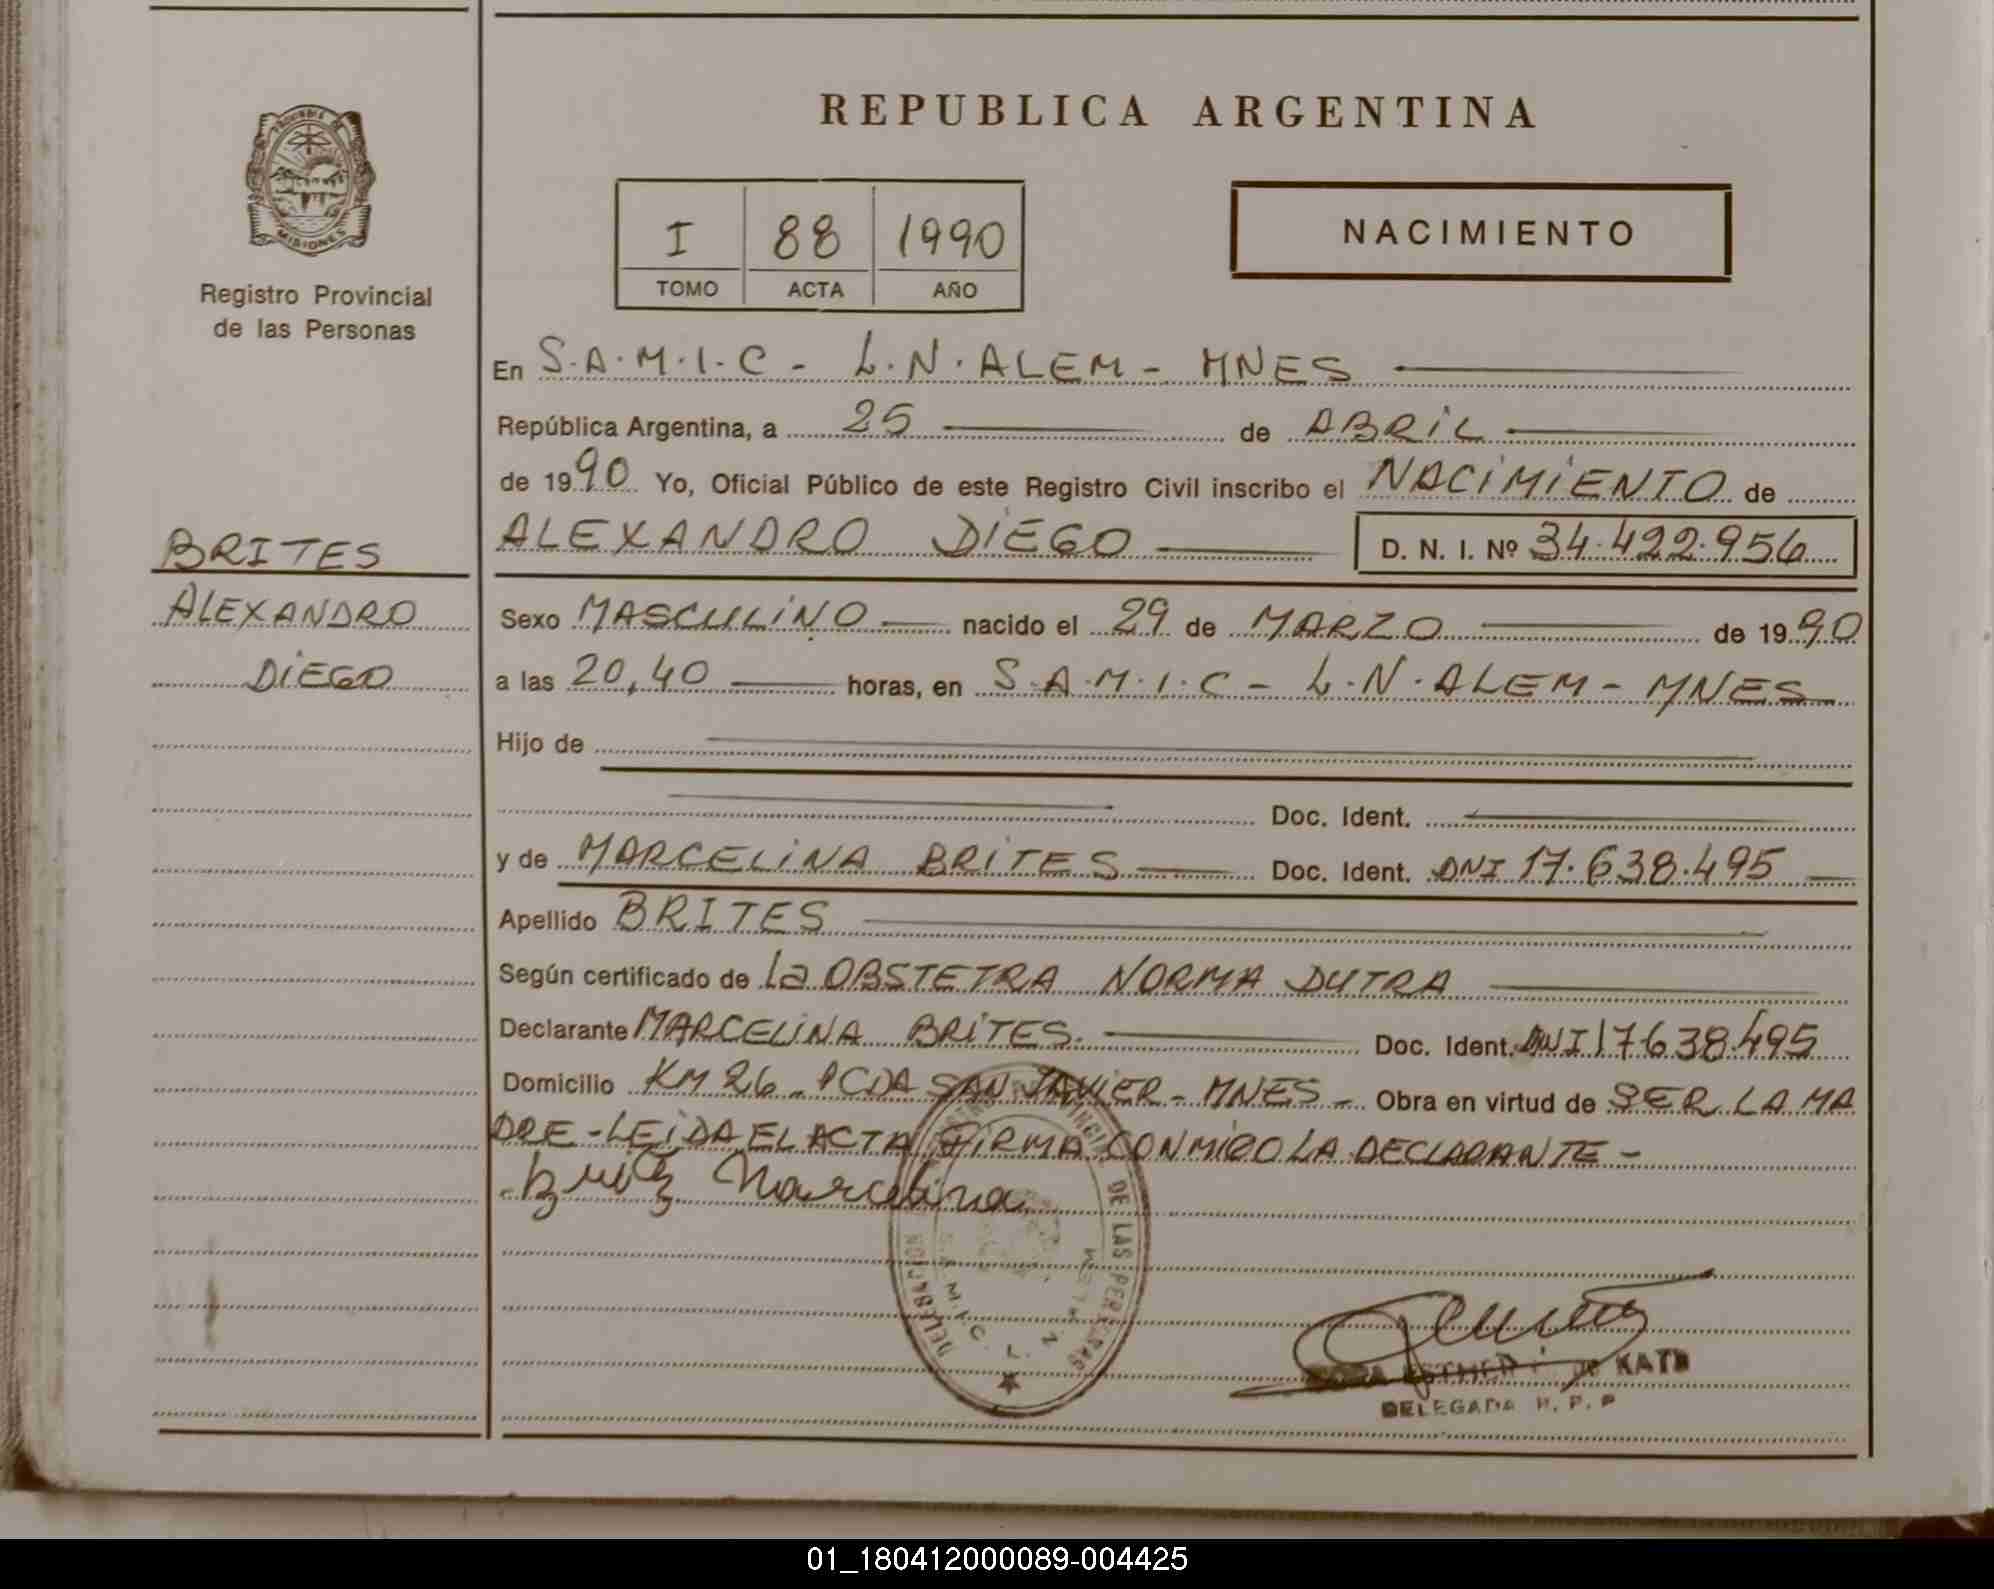 REPUBLICA ARGENTINA
MISIONES
Registro Provincial
de las Personas
I 88 1990
TOMO ACTA AÑO
NACIMIENTO
En S.A.M.I.C - L.N.ALEM - MNES
República Argentina, a 25 de ABRIL
de 1990 Yo, Oficial Público de este Registro Civil inscribo el NACIMIENTO de
ALEXANDRO DIEGO D. N. I. Nº 34.422.956
BRITES
ALEXANDRO
DIEGO
Sexo MASCULINO nacido el 29 de MARZO de 1990
a las 20,40 horas, en S.A.M.I.C - L.N.ALEM - MNES
Hijo de
Doc. Ident.
y de MARCELINA BRITES Doc. Ident. DNI 17.638.495
Apellido BRITES
Según certificado de La OBSTETRA NORMA DUTRA
Declarante MARCELINA BRITES. Doc. Ident. DNI 17638.495
Domicilio KM 26 - PCDA SAN JAVIER - MNES - Obra en virtud de SER LA MA
DRE - LEIDA EL ACTA FIRMA CONMIGO LA DECLARANTE -
Brites Marcelina
DE LAS PERSONAS
DELEGACION
S.A.M.I.C. L. N.
ESTHER de KATZ
DELEGADA R. P. P
01_180412000089-004425